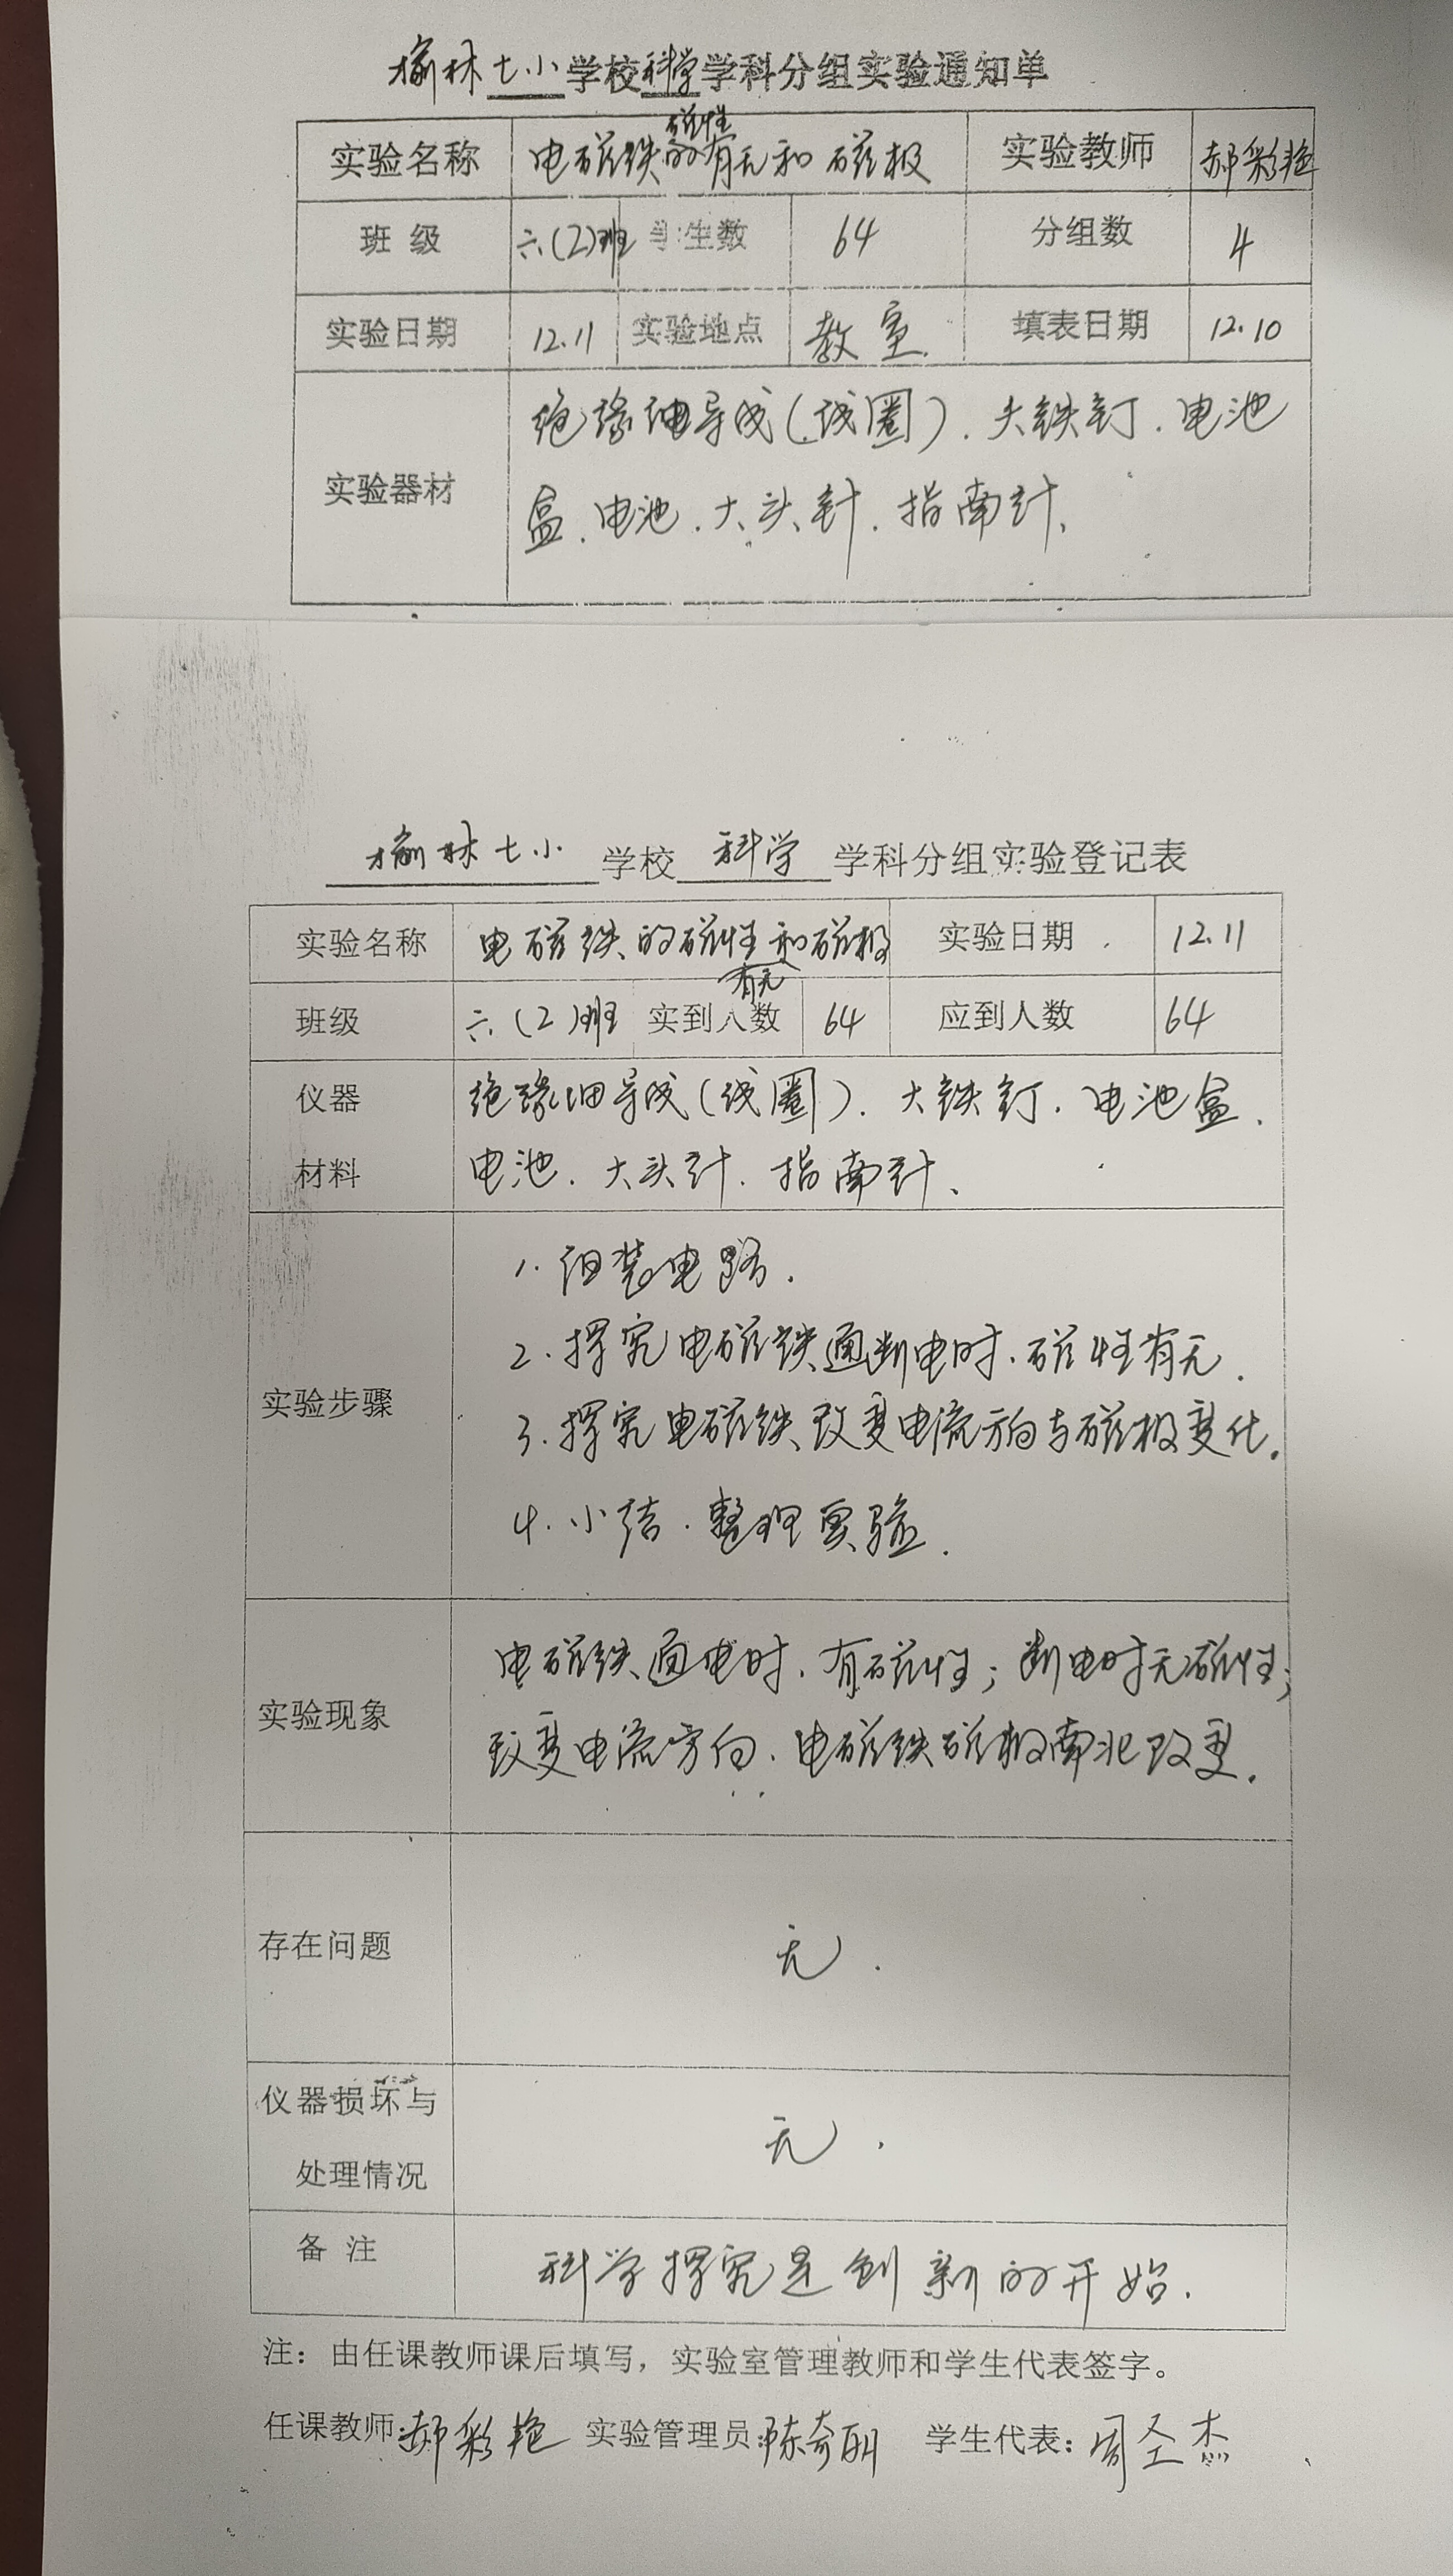 榆林七小学校科学学科分组实验通知单
实验名称 电磁铁的磁性有无和磁极 实验教师 郝彩艳
班级 六(2)班 学生数 64 分组数 4
实验日期 12.11 实验地点 教室 填表日期 12.10
实验器材 绝缘细导线(线圈)、大铁钉、电池
盒、电池、大头针、指南针、
榆林七小学校科学学科分组实验登记表
实验名称 电磁铁的磁性有无和磁极 实验日期 12.11
班级 六(2)班 实到人数 64 应到人数 64
仪器 绝缘细导线(线圈)、大铁钉、电池盒、
材料 电池、大头针、指南针、
1.组装电路.
2.探究电磁铁通断电时,磁性有无.
实验步骤
3.探究电磁铁改变电流方向与磁极变化.
4.小结.整理实验.
电磁铁通电时,有磁性;断电时无磁性;
实验现象
改变电流方向,电磁铁磁极南北改变.
存在问题 无.
仪器损坏与
处理情况 无.
备注 科学探究是创新的开始.
注:由任课教师课后填写,实验室管理教师和学生代表签字。
任课教师:郝彩艳 实验管理员:陈奇丽 学生代表:周圣杰